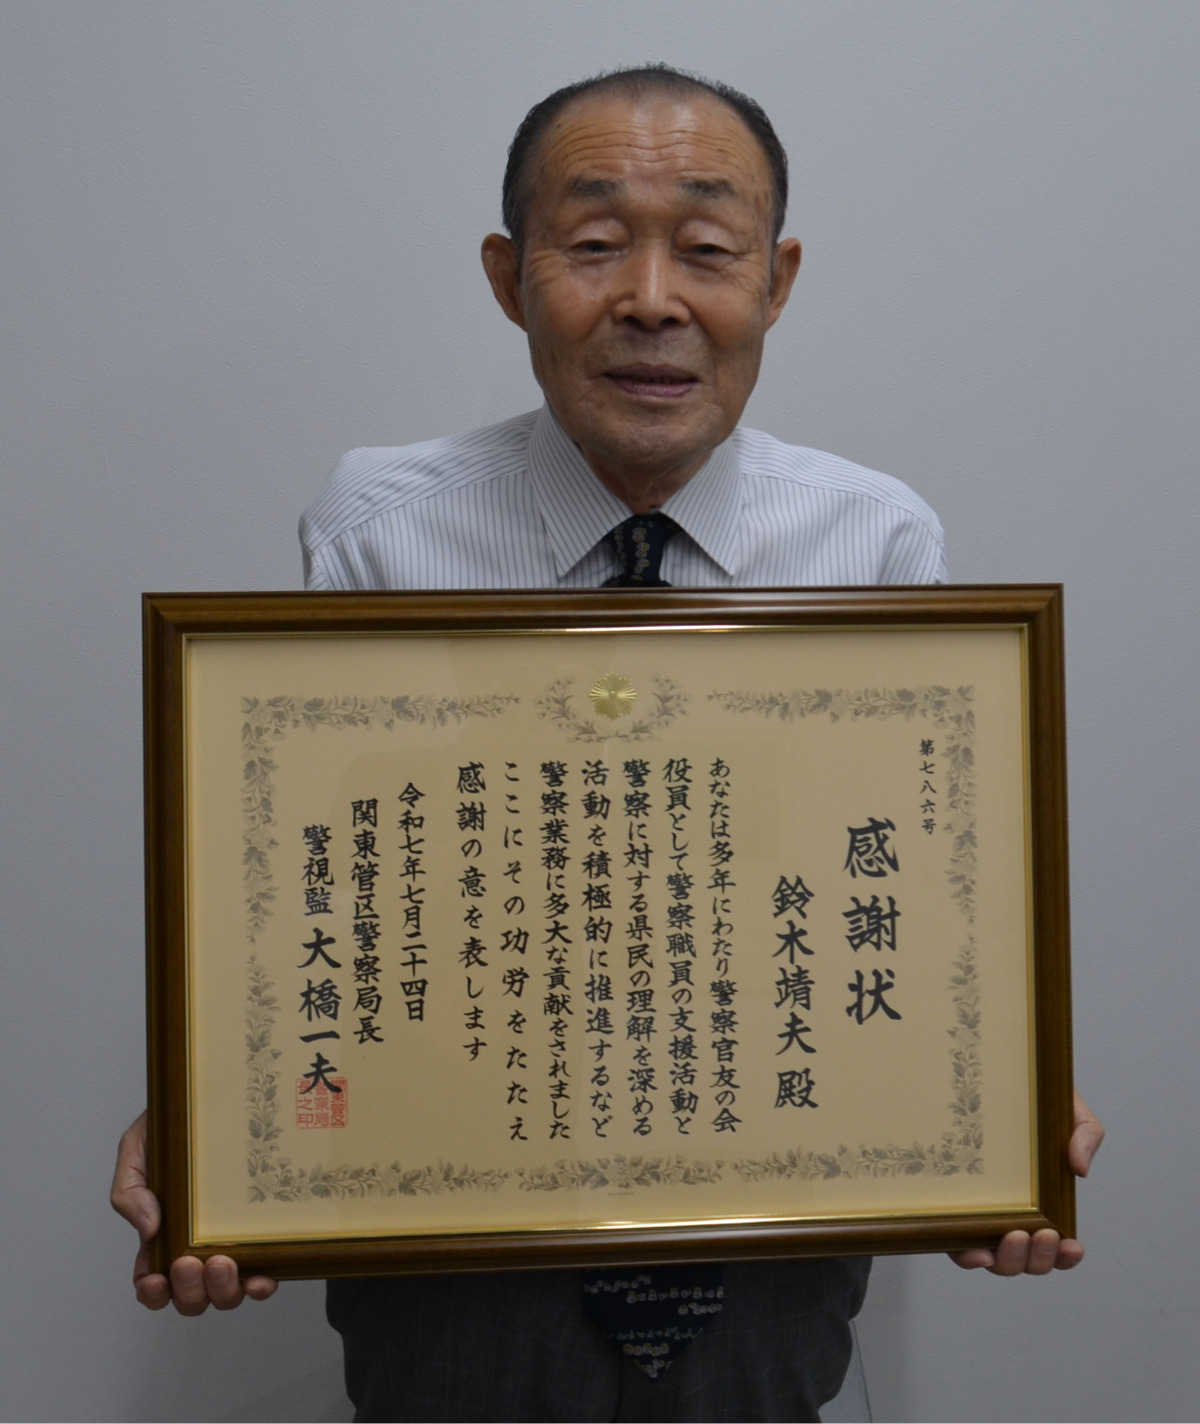 第七八六号
感謝状
鈴木靖夫殿
あなたは多年にわたり警察官友の会
役員として警察職員の支援活動と
警察に対する県民の理解を深める
活動を積極的に推進するなど
警察業務に多大な貢献をされました
ここにその功労をたたえ
感謝の意を表します
令和七年七月二十四日
関東管区警察局長
警視監 大橋一夫
関東管区
警察局
長之印